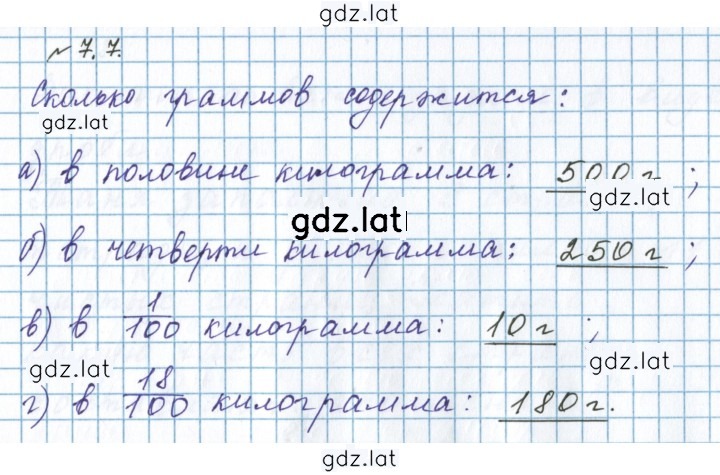 gdz.lat
№ 7.7.
Сколько граммов содержится:
gdz.lat
а) в половине килограмма: 500 г ;
gdz.lat
gdz.lat
б) в четверти килограмма: 250 г ;
в) в 1/100 килограмма: 10 г ;
gdz.lat gdz.lat
г) в 18/100 килограмма: 180 г.
gdz.lat